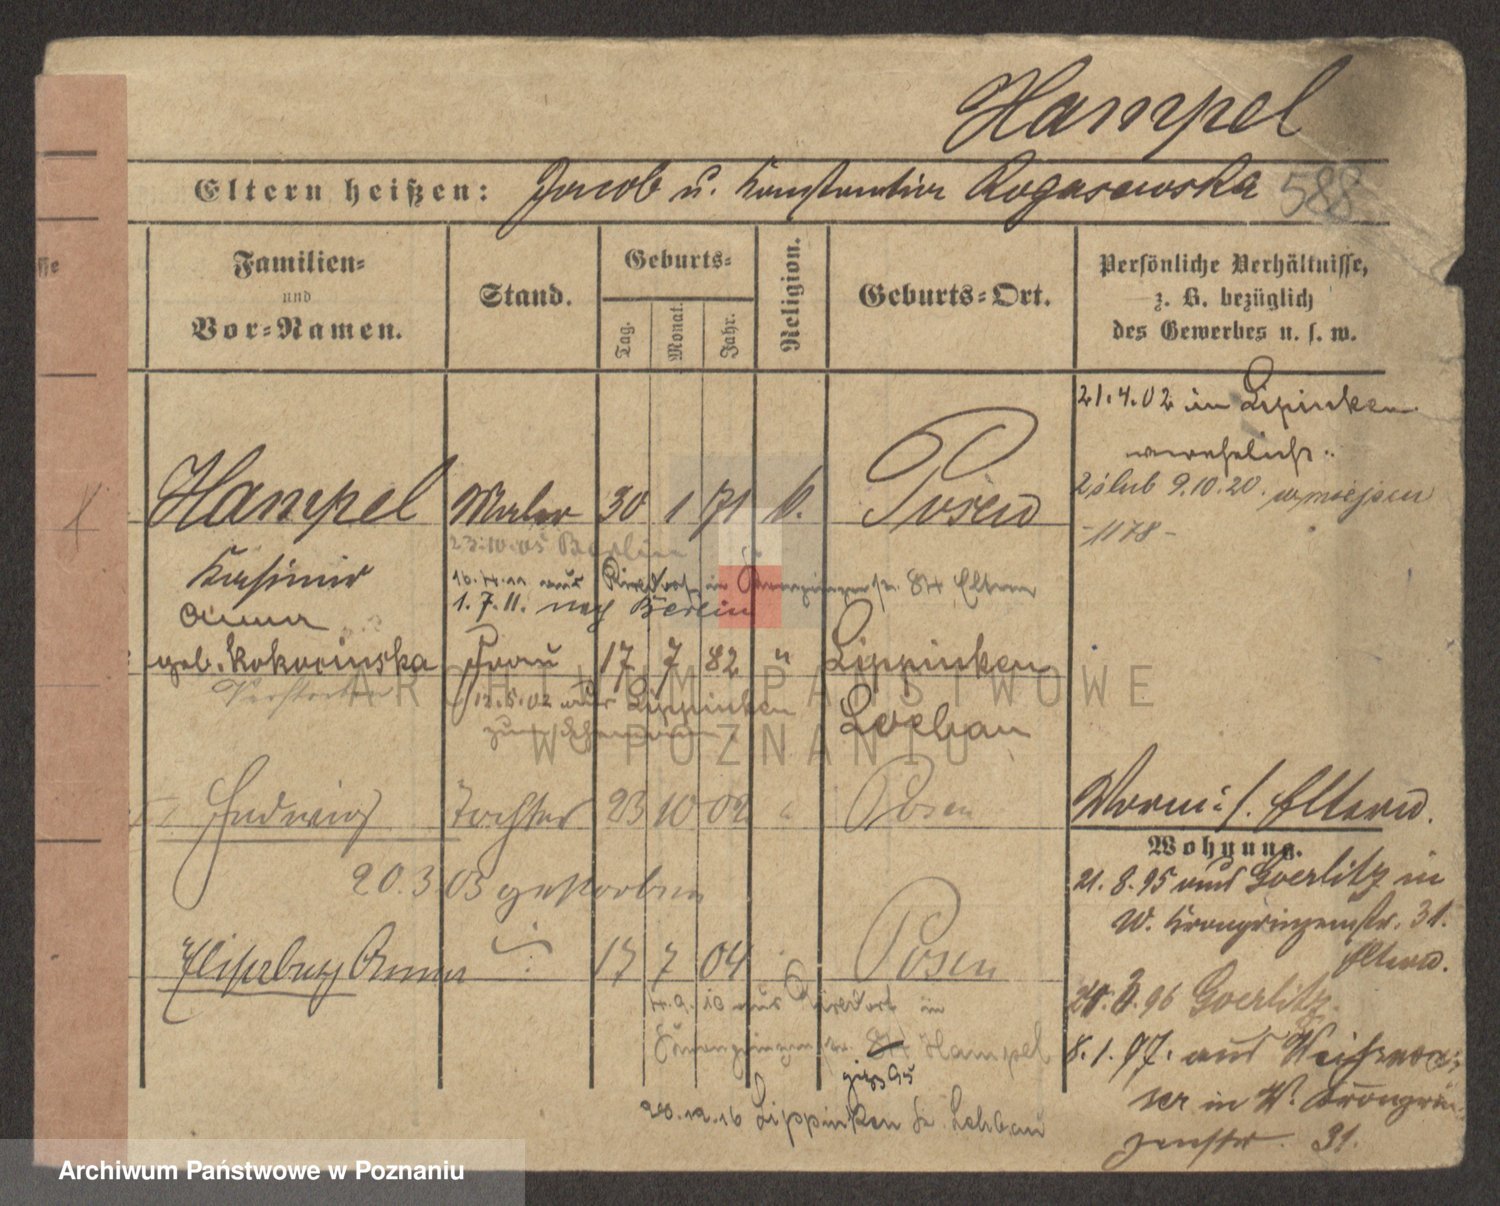 Hampel
Eltern heißen: Jacob u. Konstantina Rogasewska 588
Familien- und Vor-Namen.
Stand.
Geburts-
Tag. Monat. Jahr.
Religion.
Geburts-Ort.
Persönliche Verhältnisse,
z. B. bezüglich
des Gewerbes u. s. w.
21.4.02 in Lipinken
verehelicht.
2 ślub 9.10.20. w miejscu
-1178-
Hampel Maler 30 1 71 k. Posen
Kasimir
23.10.05 Berlin
aus Rixdorf in 84 Eltern
1.7.11. nach Berlin
Anna
geb. Kokocinska Frau 17 7 82 " Lippinken
Verstorben
12.5.02 aus Lippinken
Loebau
Hedwig Tochter 23 10 02 " Posen
20.3.03 gestorben
Elisabeth Anna 17 7 04 Posen
4.9.10 aus Rixdorf in
Kronprinzenstr. 84 Hampel
jetzt 95
20.12.16 Lippinken Kr. Löbau
Worni: s. Eltern.
Wohnung.
21.8.95 aus Goerlitz in
W. Kronprinzenstr. 31.
Eltern.
96 Goerlitz
8.1.97. aus Weissenwas-
ser in W. Kronprin-
zenstr. 31.
ARCHIWUM PAŃSTWOWE
W POZNANIU
Archiwum Państwowe w Poznaniu